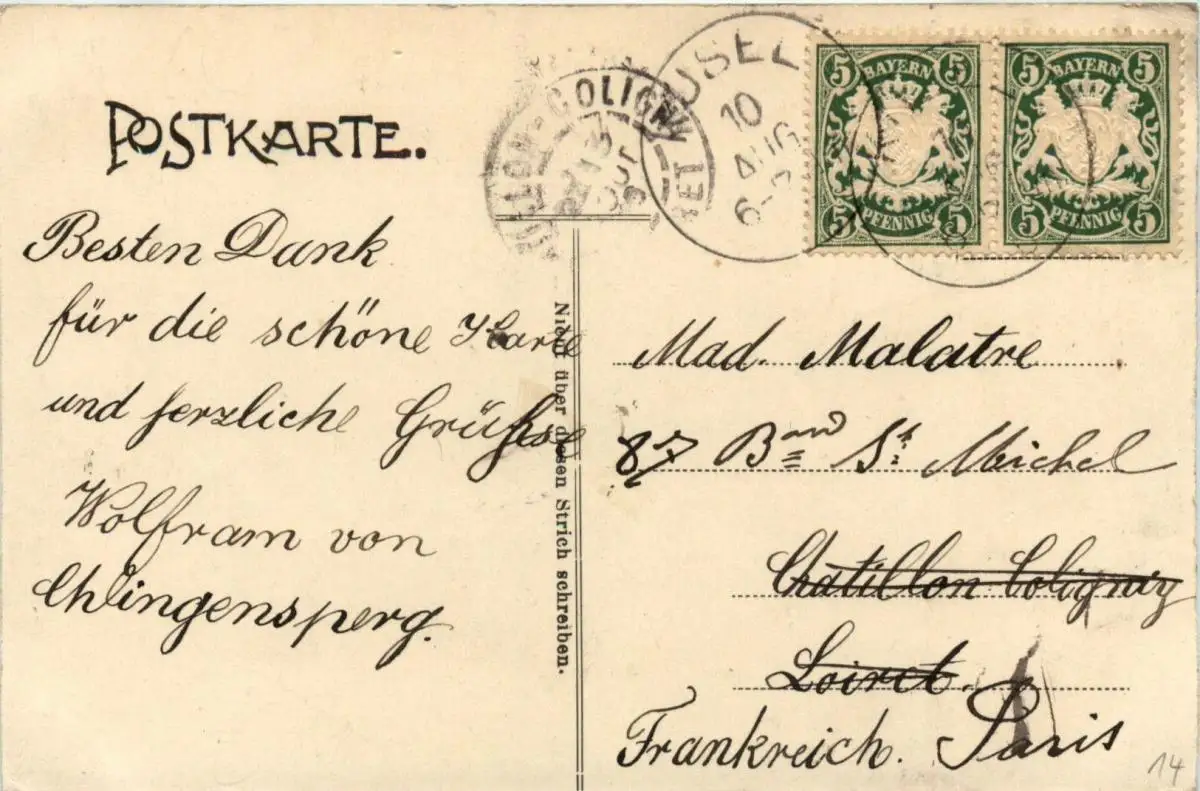 POSTKARTE.
Besten Dank
für die schöne Karte
und herzliche Grüße
Wolfram von
Chlingensperg.
Nicht über diesen Strich schreiben.
COLIGN
KUSEL
10
AUG
6-
5 BAYERN 5
5 PFENNIG 5
5 BAYERN 5
5 PFENNIG 5
Mad. Malatre
87 Bard St. Michel
Chatillon Coligniy
Loiret.
Frankreich. Paris
14